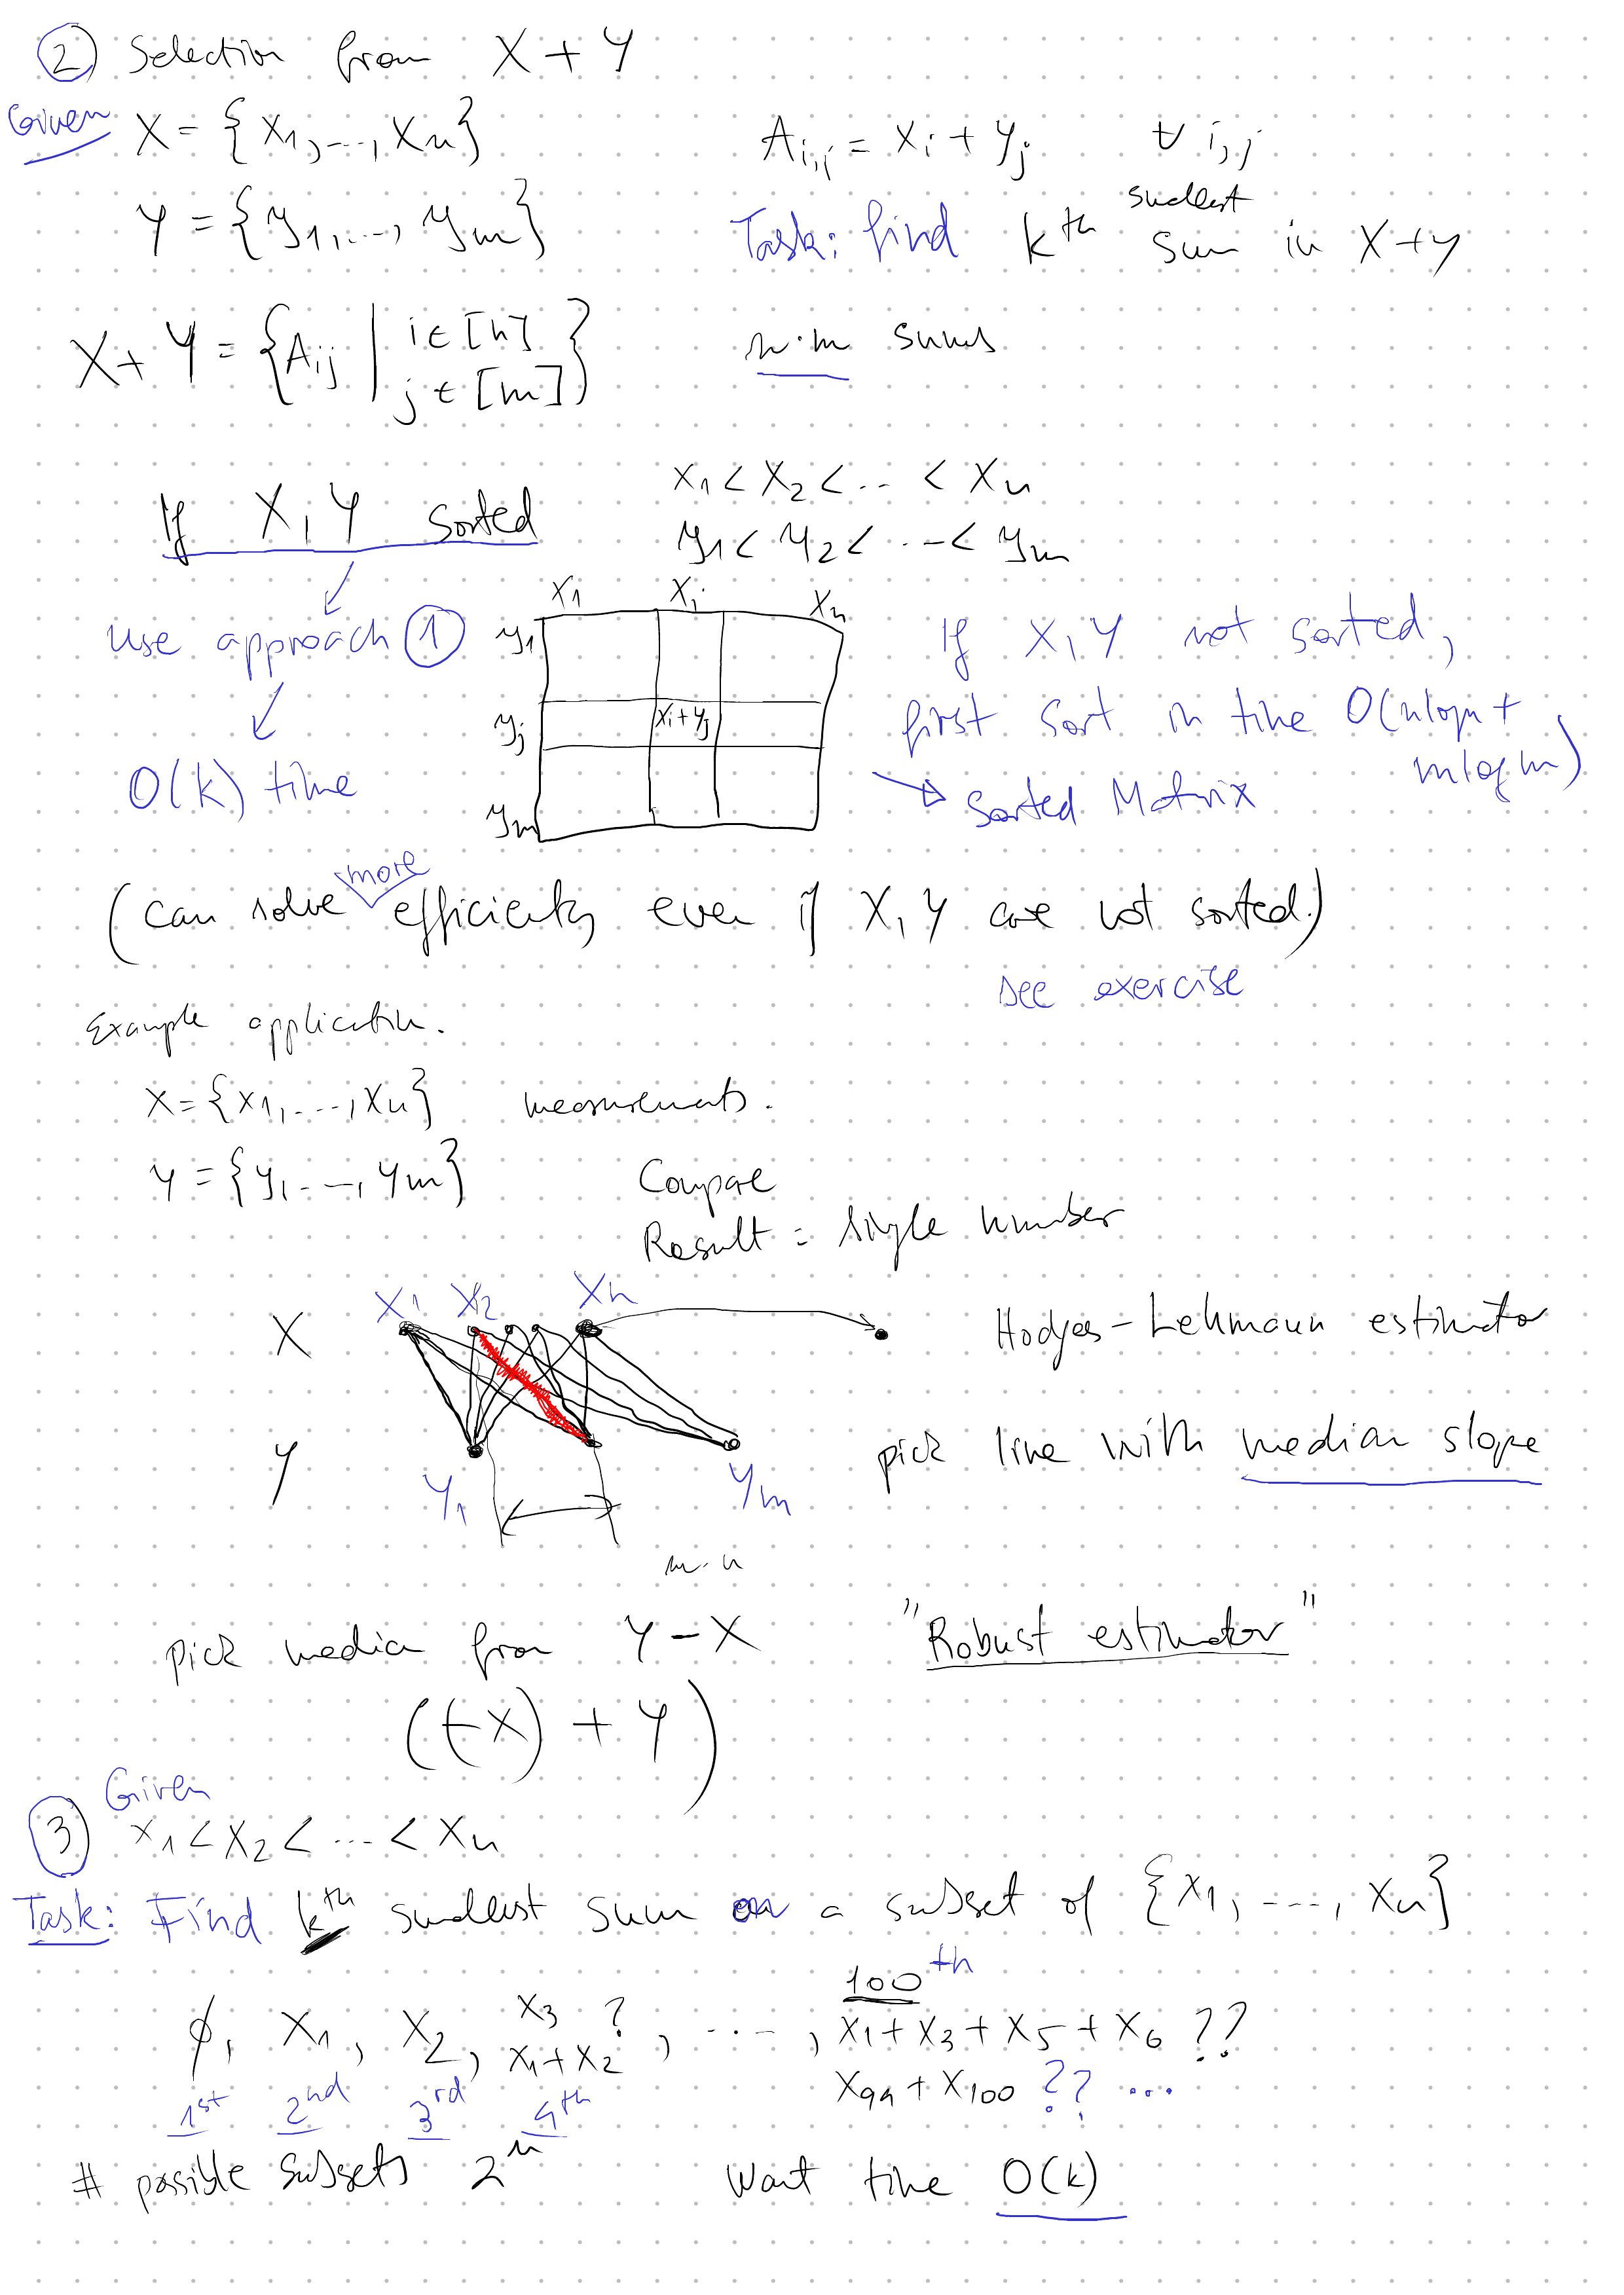 ② Selection from X + Y
Given X = {x1,...,xn}
Ai,j = xi + yj ∀ i,j
Y = {y1,..., ym}
Task: find kth smallest sum in X+Y
X + Y = {Aij | i∈[n] j∈[m]}
n·m sums
If X, Y sorted
x1 < x2 < ... < xn
y1 < y2 < ... < ym
use approach ①
O(k) time
x1 xi xn
y1
yj xi+yj
ym
If X, Y not sorted,
first sort in time O(nlogn +
mlogm)
→ Sorted Matrix
(can solve more efficiently even if X, Y are not sorted.)
see exercise
Example application.
X = {x1,...,xn} measurements.
Y = {y1,...,ym}
Compare
Result = single number
X x1 x2 xn
Hodges-Lehmann estimator
Y y1 ym
pick line with median slope
m·n
pick median from Y - X
"Robust estimator"
((-X) + Y)
Given
③ x1 < x2 < ... < xn
Task: Find kth smallest sum on a subset of {x1, ..., xn}
100th
∅, x1, x2, x3 x1+x2 ?, ..., x1+x3+x5+x6 ??
x99 + x100 ?? ...
1st 2nd 3rd 4th
# possible subsets 2^n
Want time O(k)